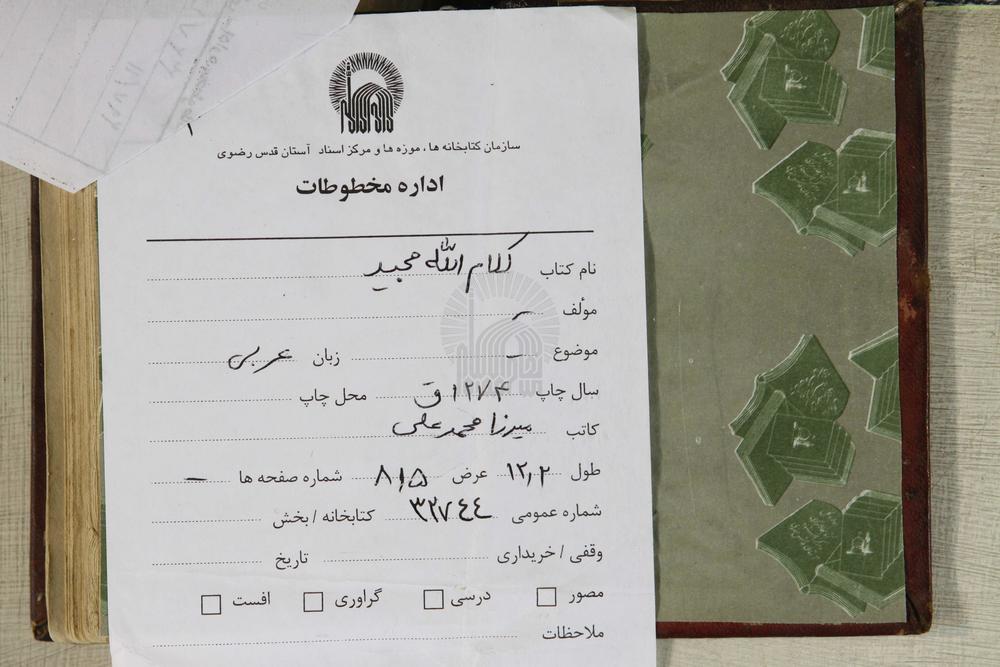 سازمان کتابخانه ها، موزه ها و مرکز اسناد آستان قدس رضوی
اداره مخطوطات
نام کتاب کلام الله مجید
مؤلف -
موضوع - زبان عربی
سال چاپ ۱۲۷۴ ق محل چاپ
کاتب میرزا محمد علی
طول ۱۲٫۲ عرض ۸٫۵ شماره صفحه ها -
شماره عمومی ۳۲۷٤٤ کتابخانه / بخش
وقفی / خریداری تاریخ
مصور درسی گراوری افست
ملاحظات